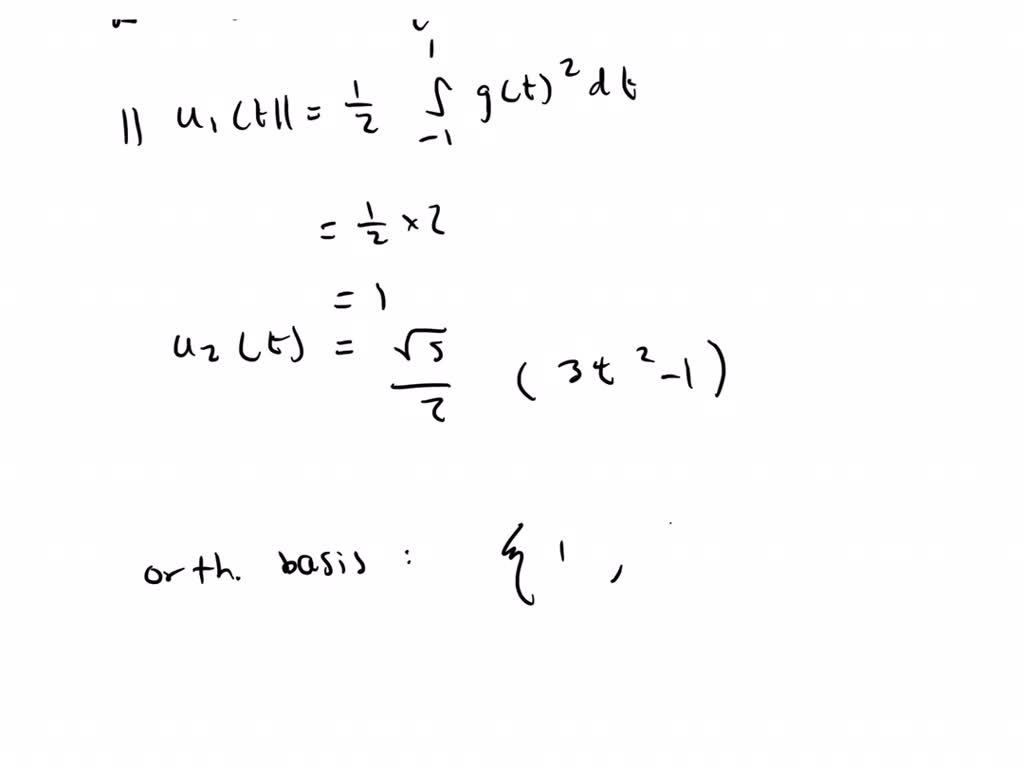 || u₁(t|| = 1/2 ∫₋₁¹ g(t)² dt
= 1/2 × 2
= 1
u₂(t) = √5/2 (3t² - 1)
orth. basis : { 1 ,